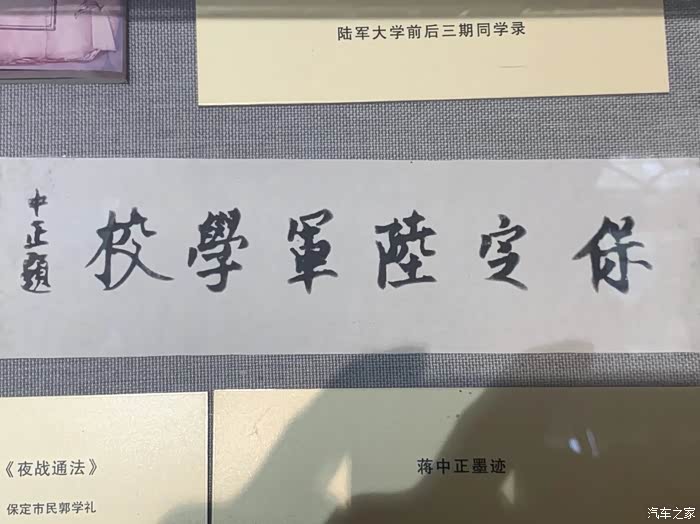 陆军大学前后三期同学录
保定陸軍學校
中正題
《夜战通法》
保定市民郭学礼
蒋中正墨迹
汽车之家